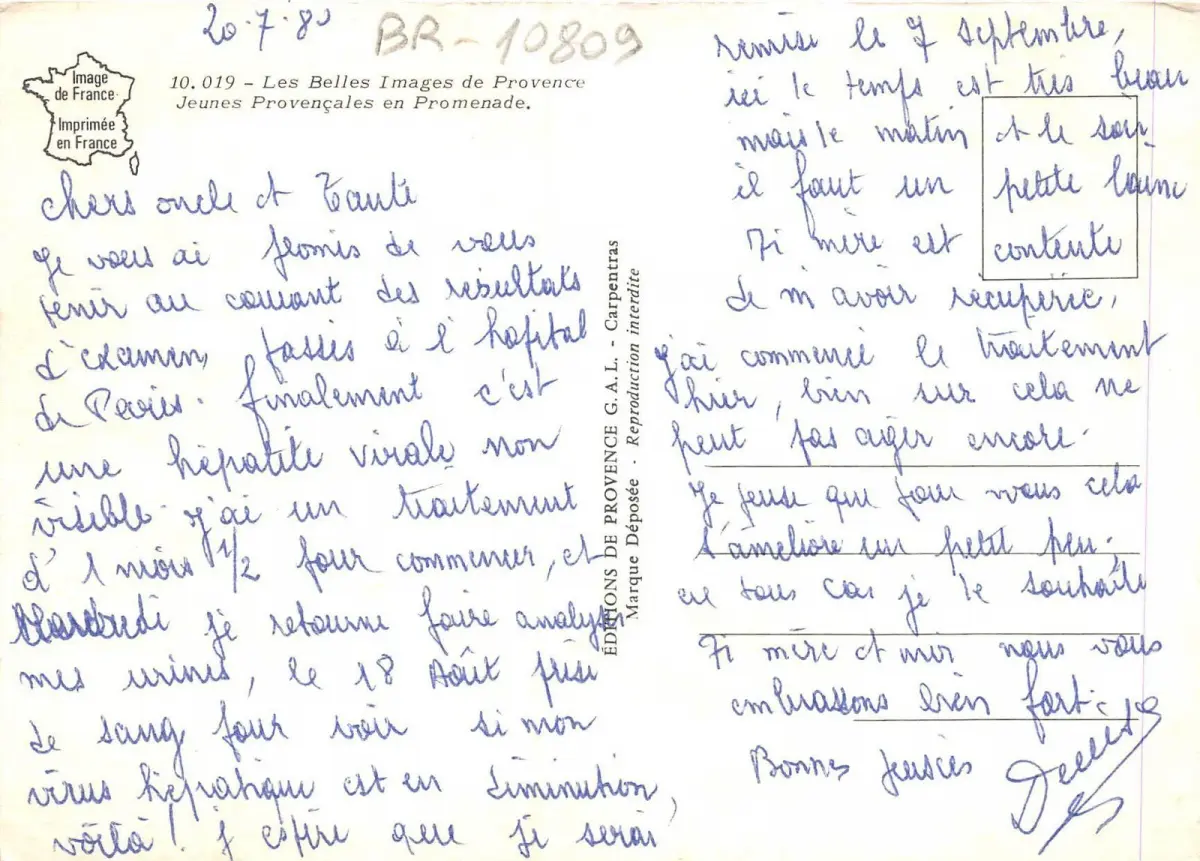 20.7.80
BR-10809
Image
de France
Imprimée
en France
10.019 - Les Belles Images de Provence
Jeunes Provençales en Promenade.
chers oncle et Tante
Je vous ai promis de vous
tenir au courant des résultats
d'examen, passés à l'hopital
de Paris. finalement c'est
une hépatite virale non
visible. j'ai un traitement
d'1 mois 1/2 pour commencer, et
je retourne faire analyser
mes urines, le 18 Août prise
de sang pour voir si mon
virus hépatique est en diminution,
voilà! j'espère que je serai
ÉDITIONS DE PROVENCE G.A.L. - Carpentras
Marque Déposée - Reproduction interdite
remise le 7 septembre,
ici le temps est très beau
mais le matin et le soir
il faut un petite laine
Ti mère est contente
de m'avoir récupérée,
j'ai commencé le traitement
hier, bien sur cela ne
peut pas agir encore.
Je pense que pour vous cela
s'améliore un petit peu.
en tous cas je le souhaite
Ti mère et moi nous vous
embrassons bien fort.
Bonnes pensées